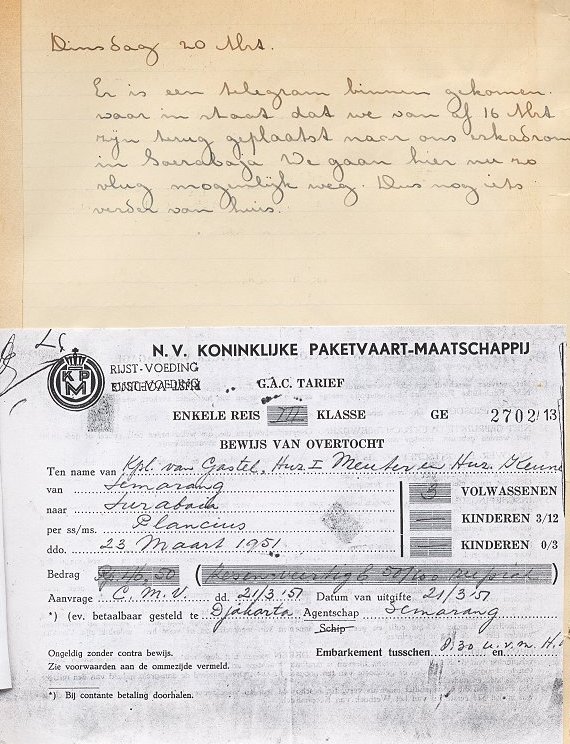 Dinsdag 20 Mrt.
Er is een telegram binnen gekomen.
waar in staat dat we van af 16 Mrt
zijn terug geplaatst naar ons eskadron
in Soerabaja We gaan hier nu zo
vlug mogenlijk weg. Dus nog iets
verder van huis.
N.V. KONINKLIJKE PAKETVAART-MAATSCHAPPIJ
KPM
RIJST-VOEDING
G.A.C. TARIEF
ENKELE REIS III KLASSE GE 2702/13
BEWIJS VAN OVERTOCHT
Ten name van Kpl. van Gastel, Huz I Meuter en Huz.
van Semarang
naar Surabaia
per ss/ms. Plancius
ddo. 23 Maart 1951
3 VOLWASSENEN
— KINDEREN 3/12
— KINDEREN 0/3
Bedrag 46,50 ( 50/100 rupiah )
Aanvrage C.M.V. dd. 21/3 '51 Datum van uitgifte 21/3 '51
*) (ev. betaalbaar gesteld te Djakarta Agentschap Semarang
Schip
Ongeldig zonder contra bewijs.
Zie voorwaarden aan de ommezijde vermeld.
Embarkement tusschen 8.30 u.v.m. en
*) Bij contante betaling doorhalen.